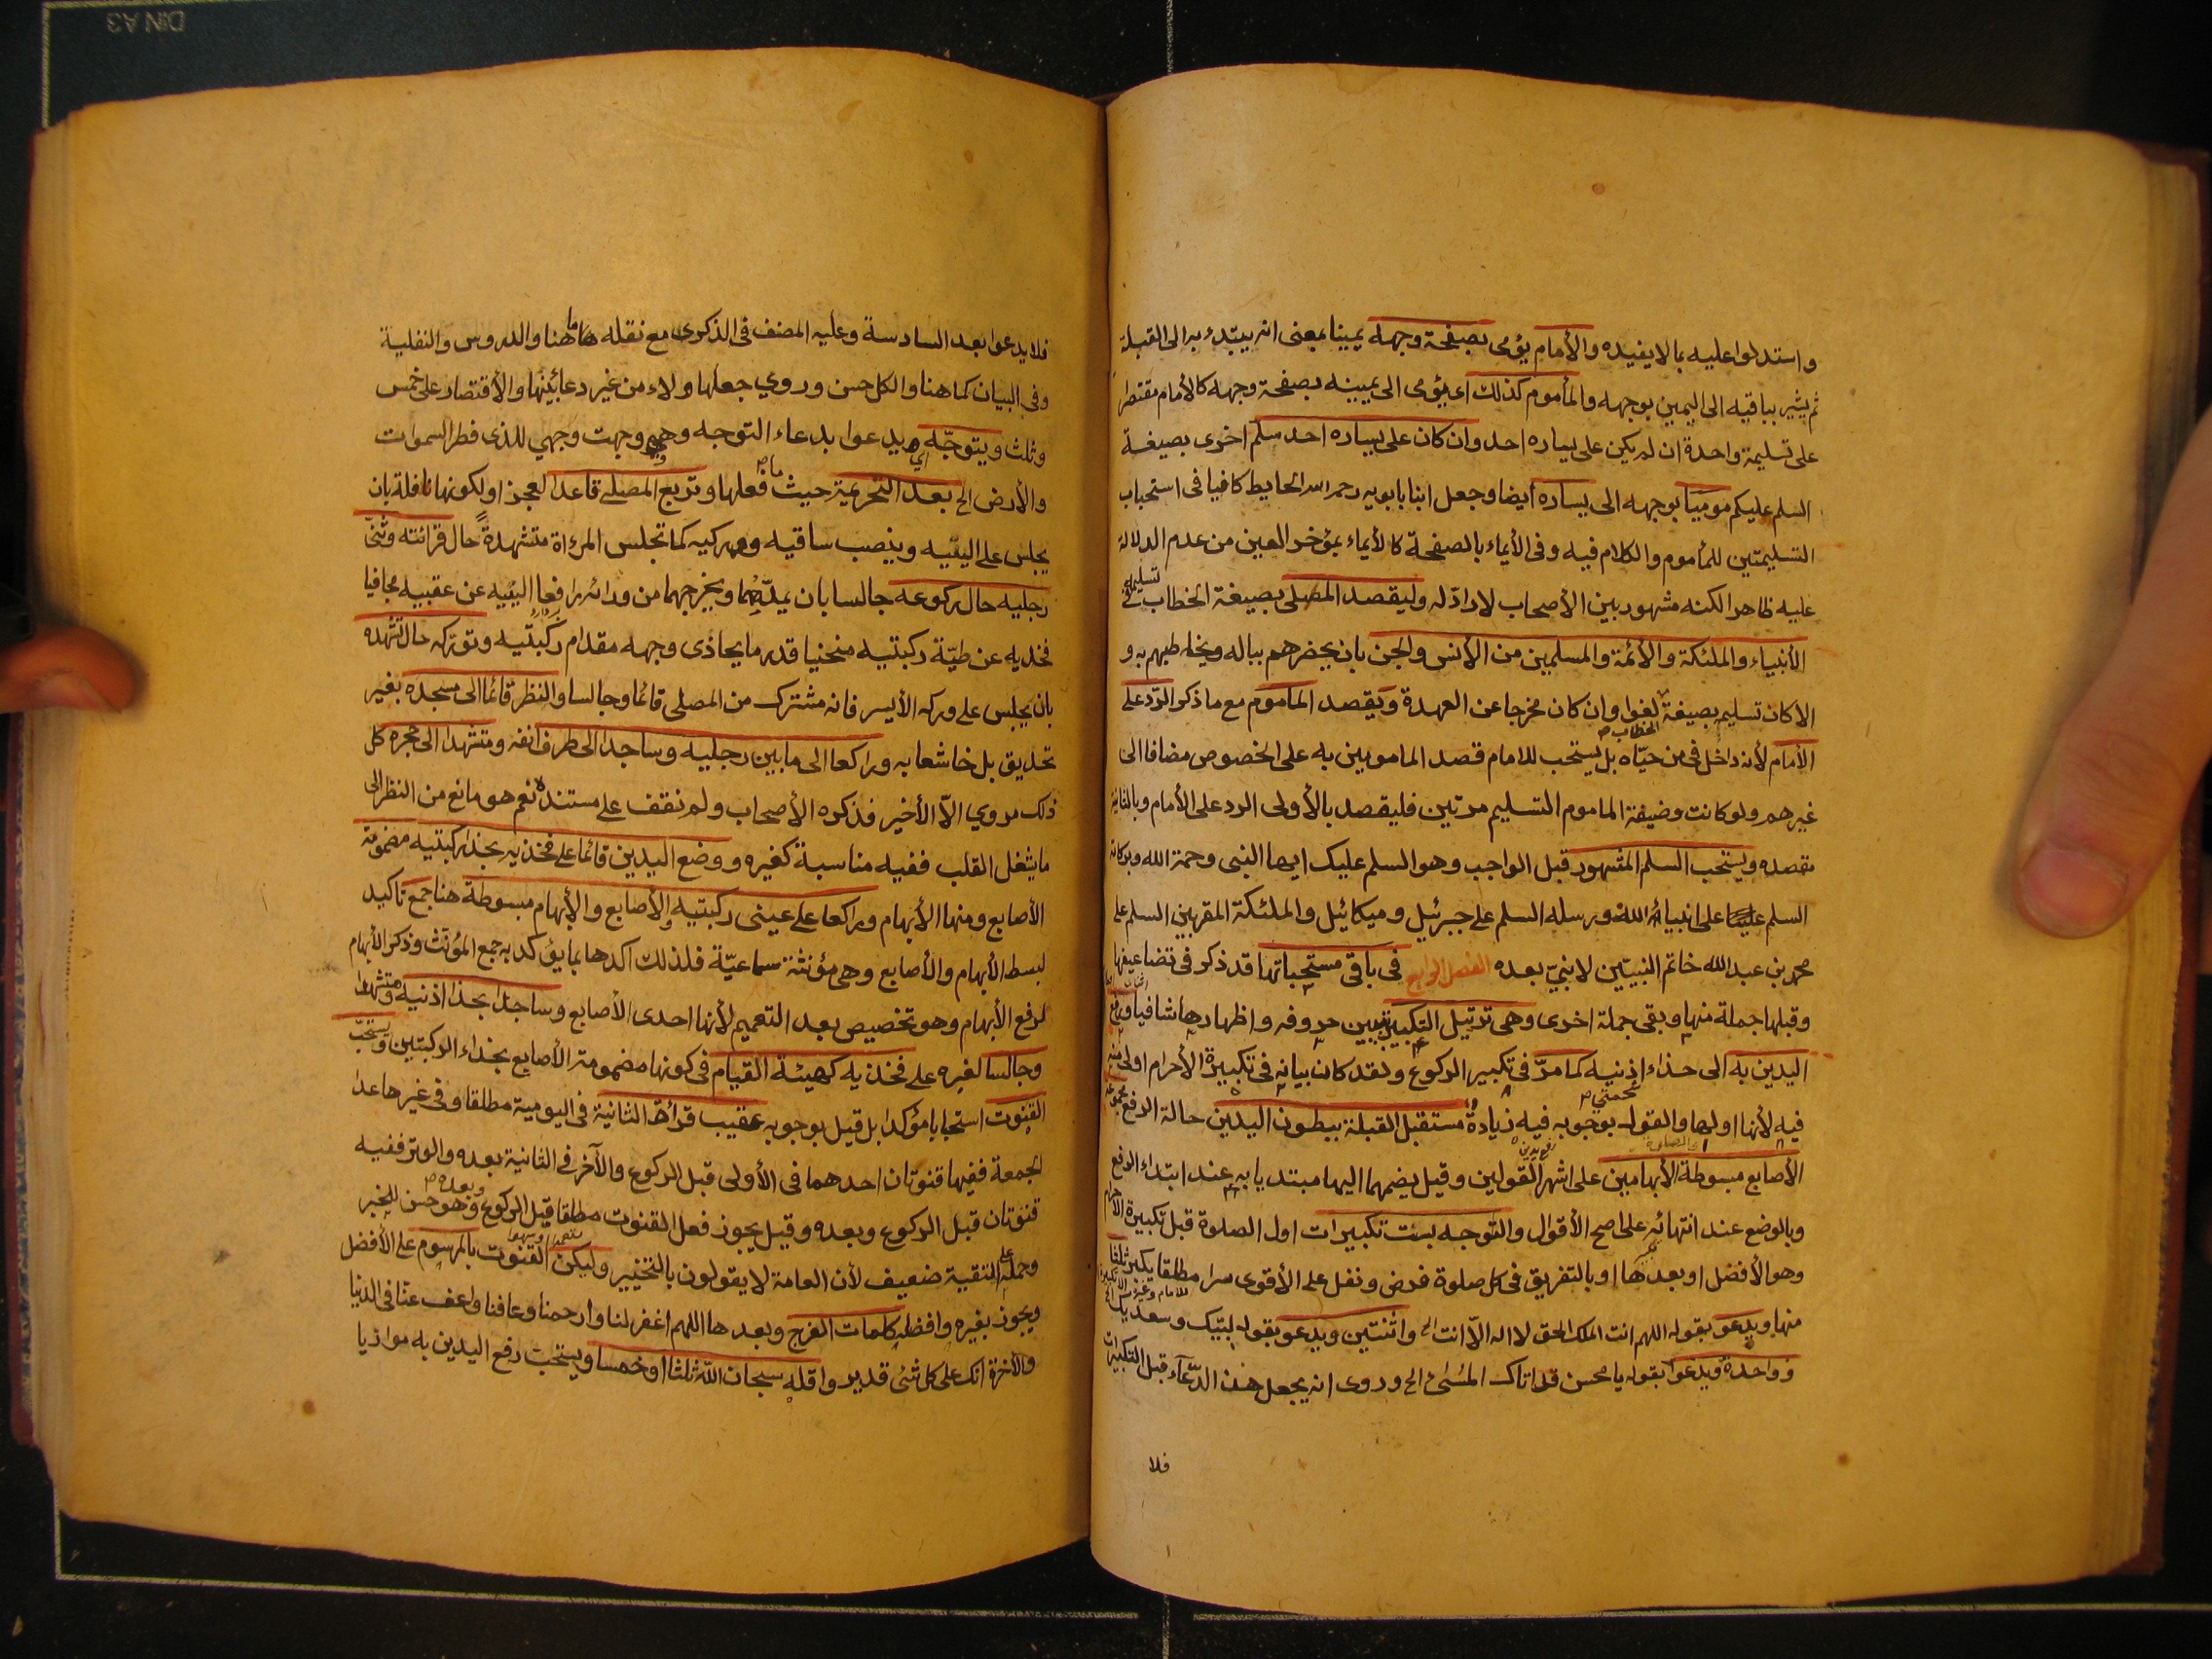 واستدلوا عليه بما لا يفيده والأمام يؤمى بصفحة وجهه يمينا بمعنى انه يبتدء به الى القبلة
ثم يشير بباقيه الى اليمين بوجهه والمأموم كذلك اى يؤمى الى يمينه بصفحة وجهه كالأمام مقتصرا
على تسليمة واحدة ان لم يكن على يساره احد وان كان على يساره احد سلم اخرى بصيغة
السلم عليكم موميا بوجهه الى يساره ايضا وجعل ابنا بابويه رحمه الله الحايط كافيا فى استحباب
التسليمتين للمأموم والكلام فيه وفى الأيماء بالصفحة كالأيماء بمؤخر العين من عدم الدلالة
عليه ظاهرا لكنه مشهور بين الأصحاب لا رادّ له وليقصد المصلى بصيغة الخطاب فى تسليمه
الأنبياء والملئكة والأئمة والمسلمين من الأنس والجن بان يحضرهم بباله ويخاطبهم به و
الا كان تسليمه بصيغة الخطاب لغوا وان كان مخرجا عن العهدة ويقصد الماموم مع ما ذكر الرّد على
الأمام لأنه داخل فى من حيّاه بل يستحب للامام قصد المامومين به على الخصوص مضافا الى
غيرهم ولو كانت وضيفة الماموم التسليم مرتين فليقصد بالأولى الرد على الأمام وبالثانية
مقصده ويستحب السلم المشهور قبل الواجب وهو السلم عليك ايها النبى ورحمة الله وبركاته
السلم على انبياء الله ورسله السلم على جبرئيل وميكائيل والملئكة المقربين السلم على
محمد بن عبد الله خاتم النبيّين لا نبيّ بعده الفصل الرابع فى باقى مستحباتها قد ذكر فى تضاعيفها
وقبلها جملة منها وبقى جملة اخرى وهى ترتيل التكبير بتبيين حروفه واظهارها شافيا ورفع
اليدين به الى حذاء اذنيه كما مرّ فى تكبير الركوع ولقد كان بيانه فى تكبيرة الأحرام اولى منه
فيه لأنها اولها والقول بوجوبه فيه زيادة مستقبل القبلة ببطون اليدين حالة الرفع مجموعة
الأصابع مبسوطة الأبهامين على اشهر القولين وقيل يضمهما اليها مبتدئا به عند ابتداء الرفع
وبالوضع عند انتهائه على اصح الأقوال والتوجه بست تكبيرات اول الصلوة قبل تكبيرة الاحرام
وهو الأفضل او بعدها او بالتفريق فى كل صلوة فرض ونفل على الأقوى سرا مطلقا يكبر ثلثا
منها ويدعو بقوله اللهم انت الملك الحق لا اله الّا انت الخ واثنتين ويدعو بقوله لبيك وسعديك
وواحدة ويدعوا بقوله يا محسن قد اتاك المسئ الخ وروى انه يجعل هذا الدّعآء قبل التكبيرات
فلا
فلا يدعوا بعد السادسة وعليه المصنف فى الذكرى مع نقله ما هنا والدروس والنفلية
وفى البيان كما هنا والكل حسن وروي جعلها ولاء من غير دعاء بينها والأقتصار على خمس
وثلث ويتوجّه اي يدعوا بدعاء التوجه وهو وجهت وجهي للذى فطر السموات
والأرض الخ بعد التحريمة حيث ما فعلها وتربع المصلى قاعدا لعجز او لكونها نافلة بان
يجلس على اليتيه وينصب ساقيه ووركيه كما تجلس المرءاة متشهدة حال قرائته وثنى
رجليه حال ركوعه جالسا بان يمدّهما ويخرجهما من ورائه رافعا اليتيه عن عقبيه مجافيا
فخذيه عن طيّة ركبتيه منحنيا قدر ما يحاذى وجهه مقدام ركبتيه وتوركه حال تشهده
بان يجلس على وركه الأيسر فانه مشترك من المصلى قائما وجالسا والنظر قائما الى مسجده بغير
تحديق بل خاشعا به وراكعا الى ما بين رجليه وساجدا الى طرف انفه ومتشهدا الى حجره كل
ذلك مروي الّا الأخير فذكره الأصحاب ولم نقف على مستنده نعم هو مانع من النظر الى
ما يشغل القلب ففيه مناسبة كغيره ووضع اليدين قائما على فخذيه بحذاء ركبتيه مضمومة
الأصابع ومنها الأبهام وراكعا على عينى ركبتيه والأصابع والأبهام مبسوطة هنا جمع تاكيد
لبسط الأبهام والأصابع وهى مؤنثة سماعيّة فلذلك اكدها بما يؤكد به جمع المؤنث وذكر الأبهام
لرفع الأبهام وهو تخصيص بعد التعميم لأنها احدى الأصابع وساجدا بحذا اذنيه ومتشهدا
وجالسا لغيره على فخذيه كهيئة القيام فى كونها مضمومة الأصابع بحذاء الركبتين ويستحبّ
القنوت استحبابا مؤكدا بل قيل بوجوبه عقيب قرأة الثانية فى اليومية مطلقا وفى غيرها عدا
الجمعة ففيها قنوتان احدهما فى الأولى قبل الركوع والآخر فى الثانية بعده والوتر ففيه
قنوتان قبل الركوع وبعده وقيل يجوز فعل القنوت مطلقا قبل الركوع وبعده وهو حسن للخبر
وحمله على التقية ضعيف لأن العامة لا يقولون بالتخيير وليكن القنوت بالمرسوم على الأفضل
ويجوز بغيره وافضله كلمات الفرج وبعدها اللهم اغفر لنا وارحمنا وعافنا واعف عنّا فى الدنيا
والأخرة انك على كل شئ قدير واقله سبحان الله ثلثا او خمسا ويستحب رفع اليدين به موازيا